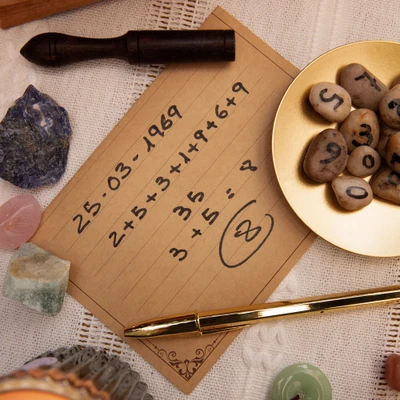 25-03-1969
2+5+3+1+9+6+9
35
3+5= 8
8
5
7
3
6
0